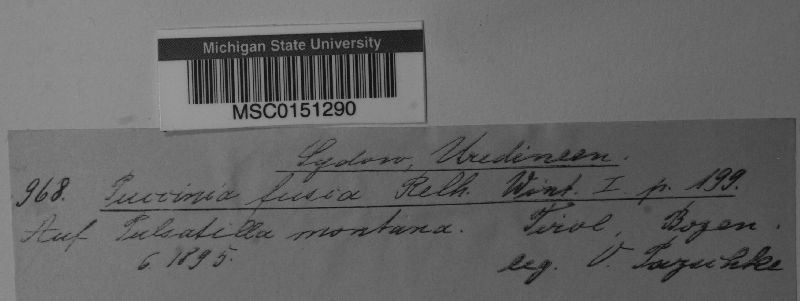 Michigan State University
MSC0151290
Sydow, Uredineen.
968. Puccinia fusca Relh. Wint. I. p. 199.
Auf Pulsatilla montana. Tirol, Bozen.
6. 1895. leg. O. Pazschke